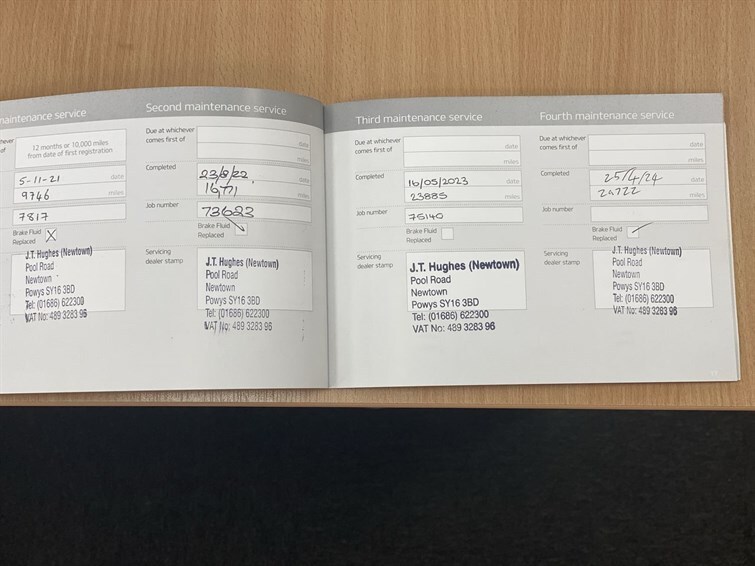 maintenance service
12 months or 10,000 miles
from date of first registration
5-11-21 date
9746 miles
7817
Brake Fluid
Replaced
J.T. Hughes (Newtown)
Pool Road
Newtown
Powys SY16 3BD
Tel: (01686) 622300
VAT No: 489 3283 96
Second maintenance service
Due at whichever
comes first of
date
miles
Completed
date
miles
Job number
73623
Brake Fluid
Replaced
Servicing
dealer stamp
J.T. Hughes (Newtown)
Pool Road
Newtown
Powys SY16 3BD
Tel: (01686) 622300
VAT No: 489 3283 96
Third maintenance service
Due at whichever
comes first of
date
miles
Completed
16/05/2023 date
23885 miles
Job number
75140
Brake Fluid
Replaced
Servicing
dealer stamp
J.T. Hughes (Newtown)
Pool Road
Newtown
Powys SY16 3BD
Tel: (01686) 622300
VAT No: 489 3283 96
Fourth maintenance service
Due at whichever
comes first of
date
miles
Completed
25/4/24 date
miles
Job number
Brake Fluid
Replaced
Servicing
dealer stamp
J.T. Hughes (Newtown)
Pool Road
Newtown
Powys SY16 3BD
Tel: (01686) 622300
VAT No: 489 3283 96